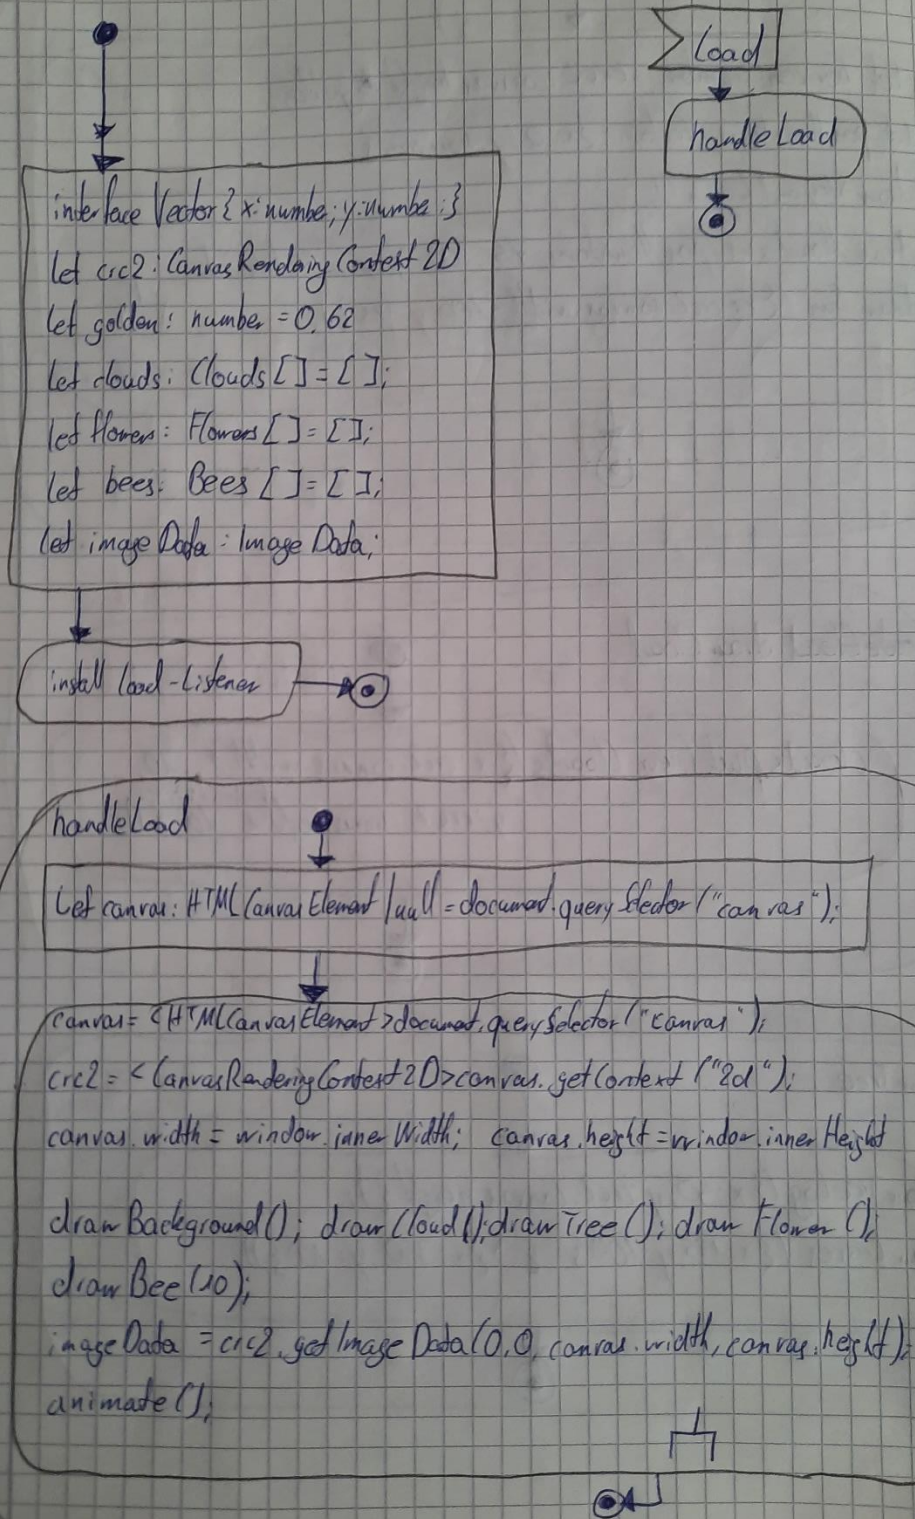 Load
handleLoad
interface Vector { x: number; y: number; }
let crc2: CanvasRenderingContext2D
let golden: number = 0.62
let clouds: Clouds [ ] = [ ];
let flowers: Flowers [ ] = [ ];
let bees: Bees [ ] = [ ];
let imageData: ImageData;
install load-Listener
handleLoad
Let canvas: HTMLCanvasElement | null = document.querySelector("canvas");
canvas = <HTMLCanvasElement>document.querySelector("canvas");
crc2 = <CanvasRenderingContext2D>canvas.getContext("2d");
canvas.width = window.innerWidth; canvas.height = window.innerHeight
drawBackground(); drawCloud(); drawTree(); drawFlower();
drawBee(10);
imageData = crc2.getImageData(0,0, canvas.width, canvas.height);
animate();